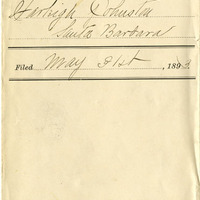 Harleigh Johnston
Santa Barbara
Filed May 31st, 189